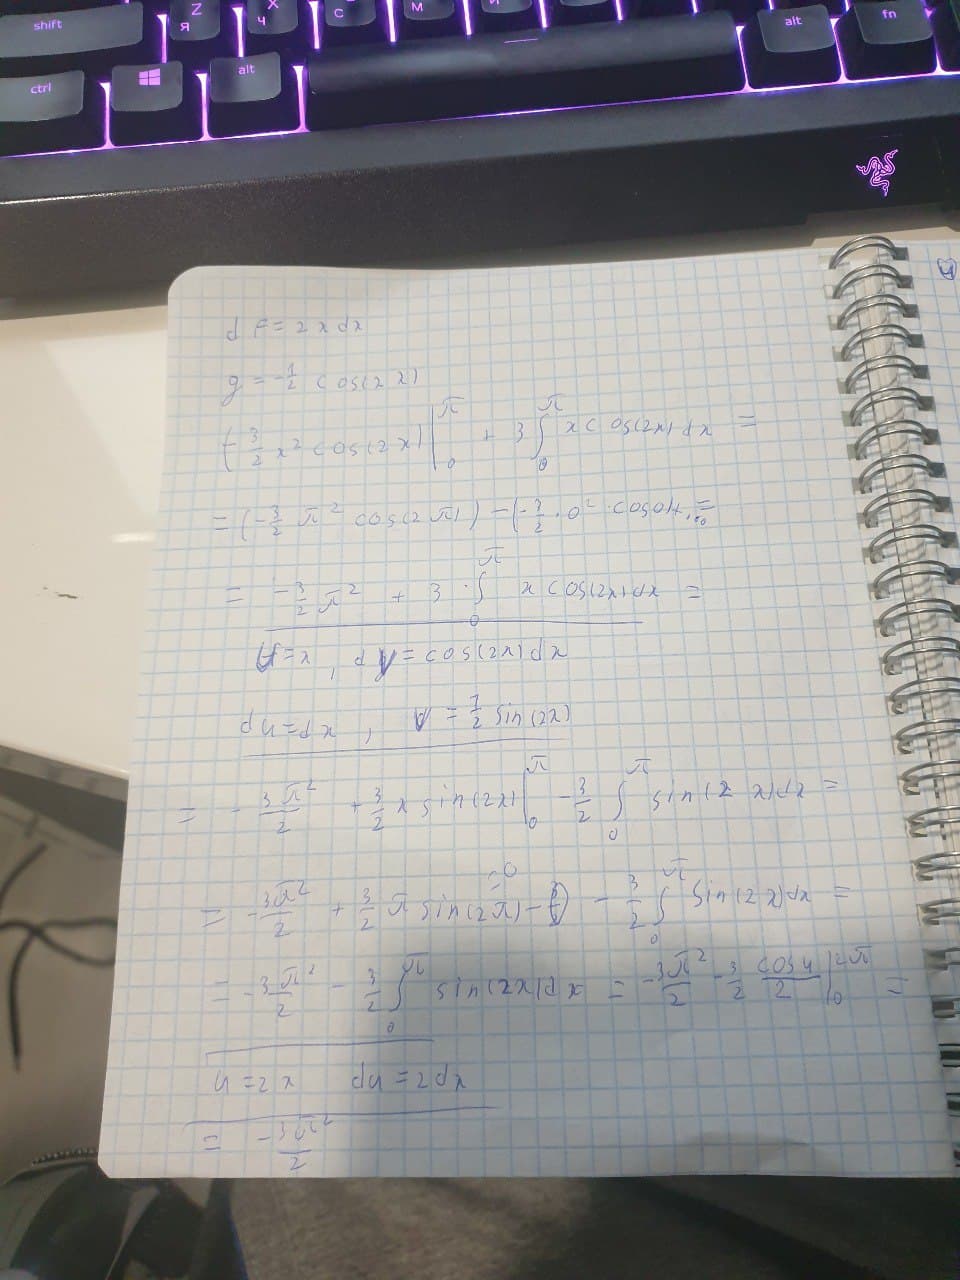 shift
Z Я
X Ч
C С
M
ctrl
alt
alt
fn
df = 2x dx
g = -1/2 cos(2x)
(-3/2 x² cos(2x)) |₀^π + 3 ∫₀^π x cos(2x) dx =
= (-3/2 π² cos(2π)) - (-3/2 · 0² · cos0)+... =
= -3/2 π² + 3 · ∫₀^π x cos(2x) dx =
U = x , dV = cos(2x) dx
du = dx , V = 1/2 sin(2x)
= - 3π²/2 + 3/2 x sin(2x) |₀^π - 3/2 ∫₀^π sin(2x) dx =
= - 3π²/2 + 3/2 π sin(2π) - 0 - 3/2 ∫₀^π sin(2x) dx =
=0
= - 3π²/2 - 3/2 ∫₀^π sin(2x) dx = - 3π²/2 - 3/2 cos u/2 |₀^2π =
u = 2x du = 2dx
= - 3π²/2